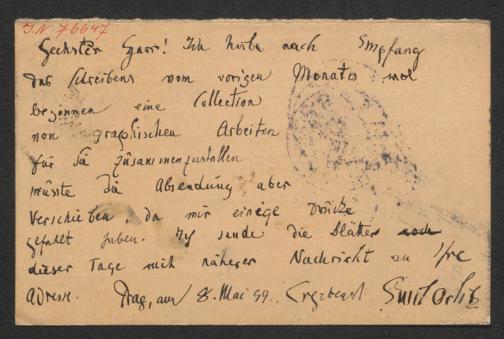 I.N. 76647
Geehrter Herr! Ich habe nach Empfang
des Schreibens vom vorigen Monate wol
begonnen eine Collection
von graphischen Arbeiten
für Sie zusammenzustellen
müsste die Absendung aber
verschieben, da mir einige Drucke
gefehlt haben. Ich sende die Blätter noch
dieser Tage mit näherer Nachricht an Ihre
Adresse. Prag, am 8. Mai 99. Ergebenst Emil Orlik